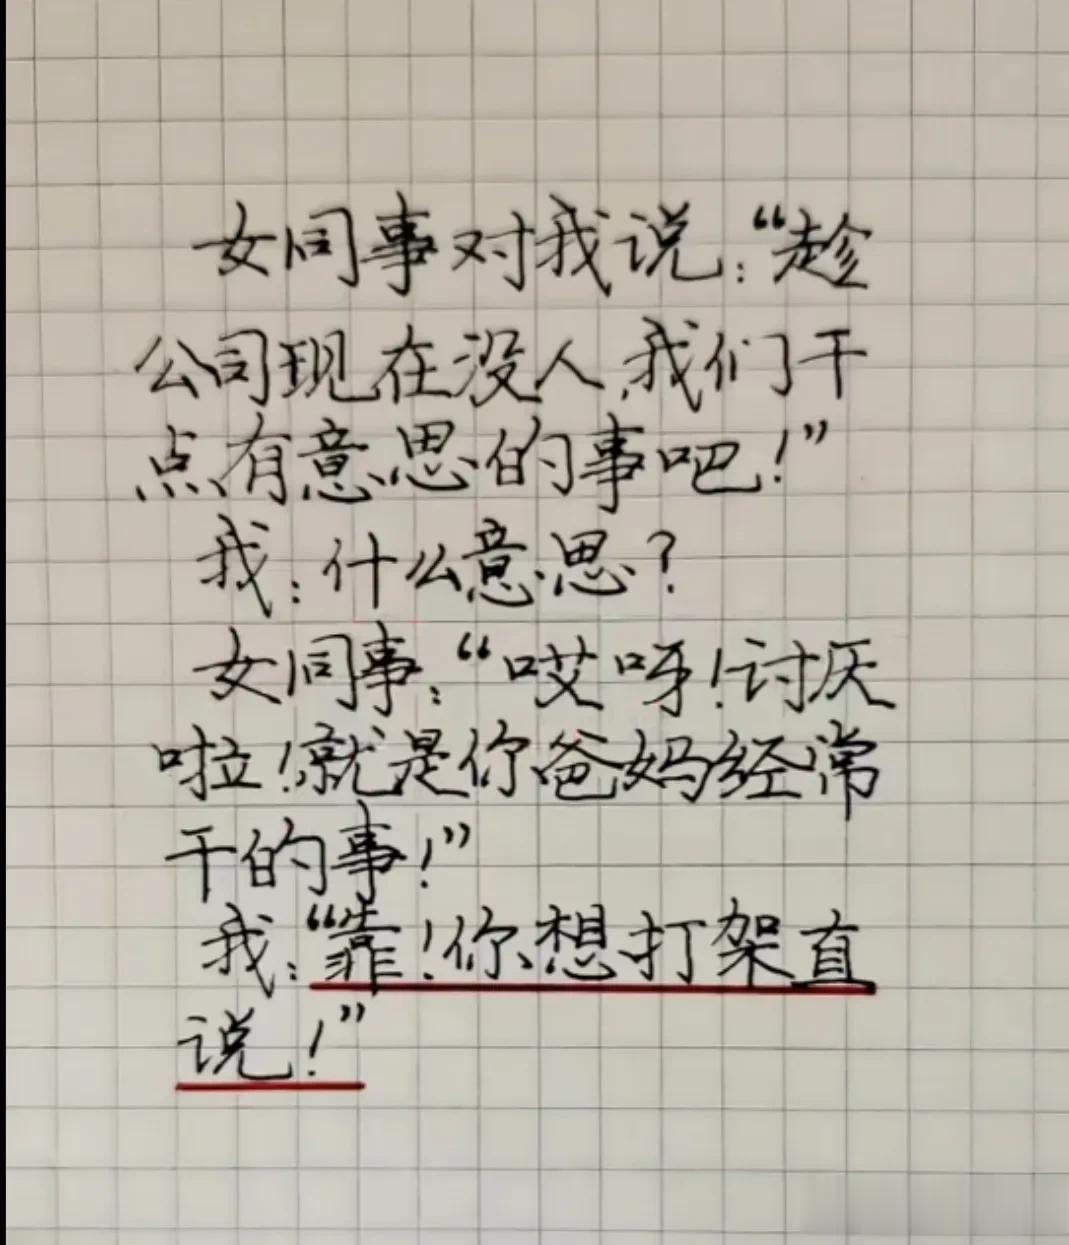 女同事对我说:“趁
公司现在没人,我们干
点有意思的事吧!”
我:什么意思?
女同事:“哎呀!讨厌
啦!就是你爸妈经常
干的事!”
我:“靠!你想打架直
说!”